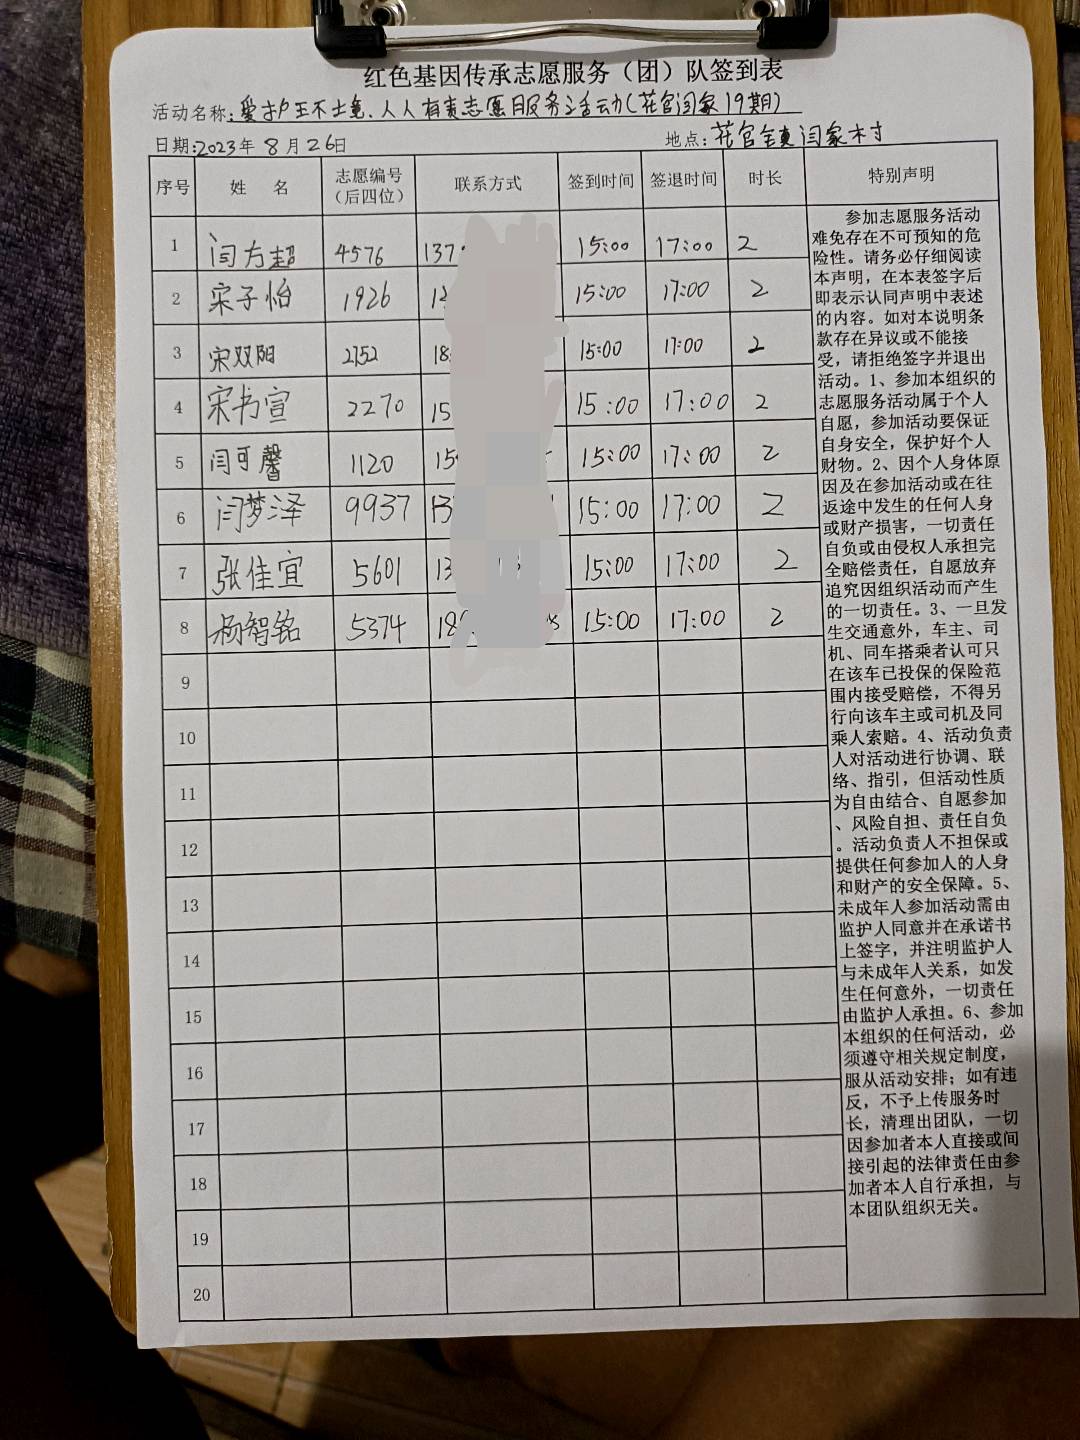 红色基因传承志愿服务（团）队签到表
活动名称：爱护环境，人人有责志愿服务活动（花官闫家19期）
日期：2023年8月26日 地点：花官镇闫家村
序号 姓 名 志愿编号（后四位） 联系方式 签到时间 签退时间 时长 特别声明
1 闫方超 4576 137 15:00 17:00 2
2 宋子怡 1926 15:00 17:00 2
3 宋双阳 2752 18 15:00 17:00 2
4 宋书宣 2270 15 15:00 17:00 2
5 闫可馨 1120 15 15:00 17:00 2
6 闫梦泽 9937 13 15:00 17:00 2
7 张佳宜 5601 13 15:00 17:00 2
8 杨智铭 5374 18 15:00 17:00 2
9
10
11
12
13
14
15
16
17
18
19
20
参加志愿服务活动
难免存在不可预知的危
险性。请务必仔细阅读
本声明，在本表签字后
即表示认同声明中表述
的内容。如对本说明条
款存在异议或不能接
受，请拒绝签字并退出
活动。1、参加本组织的
志愿服务活动属于个人
自愿，参加活动要保证
自身安全，保护好个人
财物。2、因个人身体原
因及在参加活动或在往
返途中发生的任何人身
或财产损害，一切责任
自负或由侵权人承担完
全赔偿责任，自愿放弃
追究因组织活动而产生
的一切责任。3、一旦发
生交通意外，车主、司
机、同车搭乘者认可只
在该车已投保的保险范
围内接受赔偿，不得另
行向该车主或司机及同
乘人索赔。4、活动负责
人对活动进行协调、联
络、指引，但活动性质
为自由结合、自愿参加
、风险自担、责任自负
。活动负责人不担保或
提供任何参加人的人身
和财产的安全保障。5、
未成年人参加活动需由
监护人同意并在承诺书
上签字，并注明监护人
与未成年人关系，如发
生任何意外，一切责任
由监护人承担。6、参加
本组织的任何活动，必
须遵守相关规定制度，
服从活动安排；如有违
反，不予上传服务时
长，清理出团队，一切
因参加者本人直接或间
接引起的法律责任由参
加者本人自行承担，与
本团队组织无关。